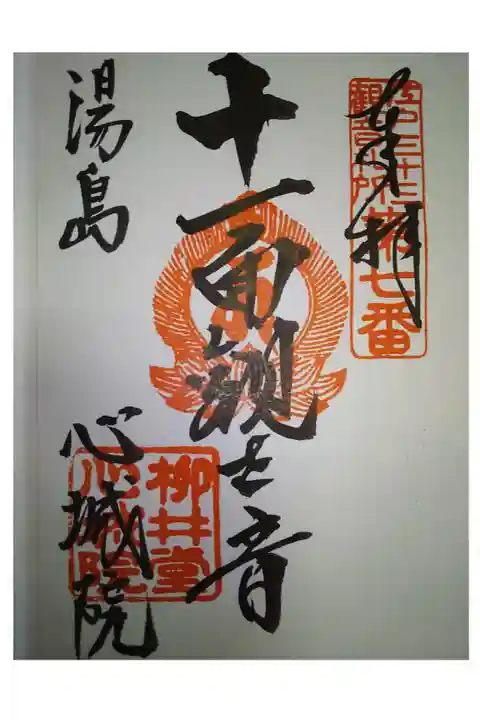 奉拝
江戸三十三
観音札所第七番
十一面観世音
湯島
心城院
柳井堂
心城院